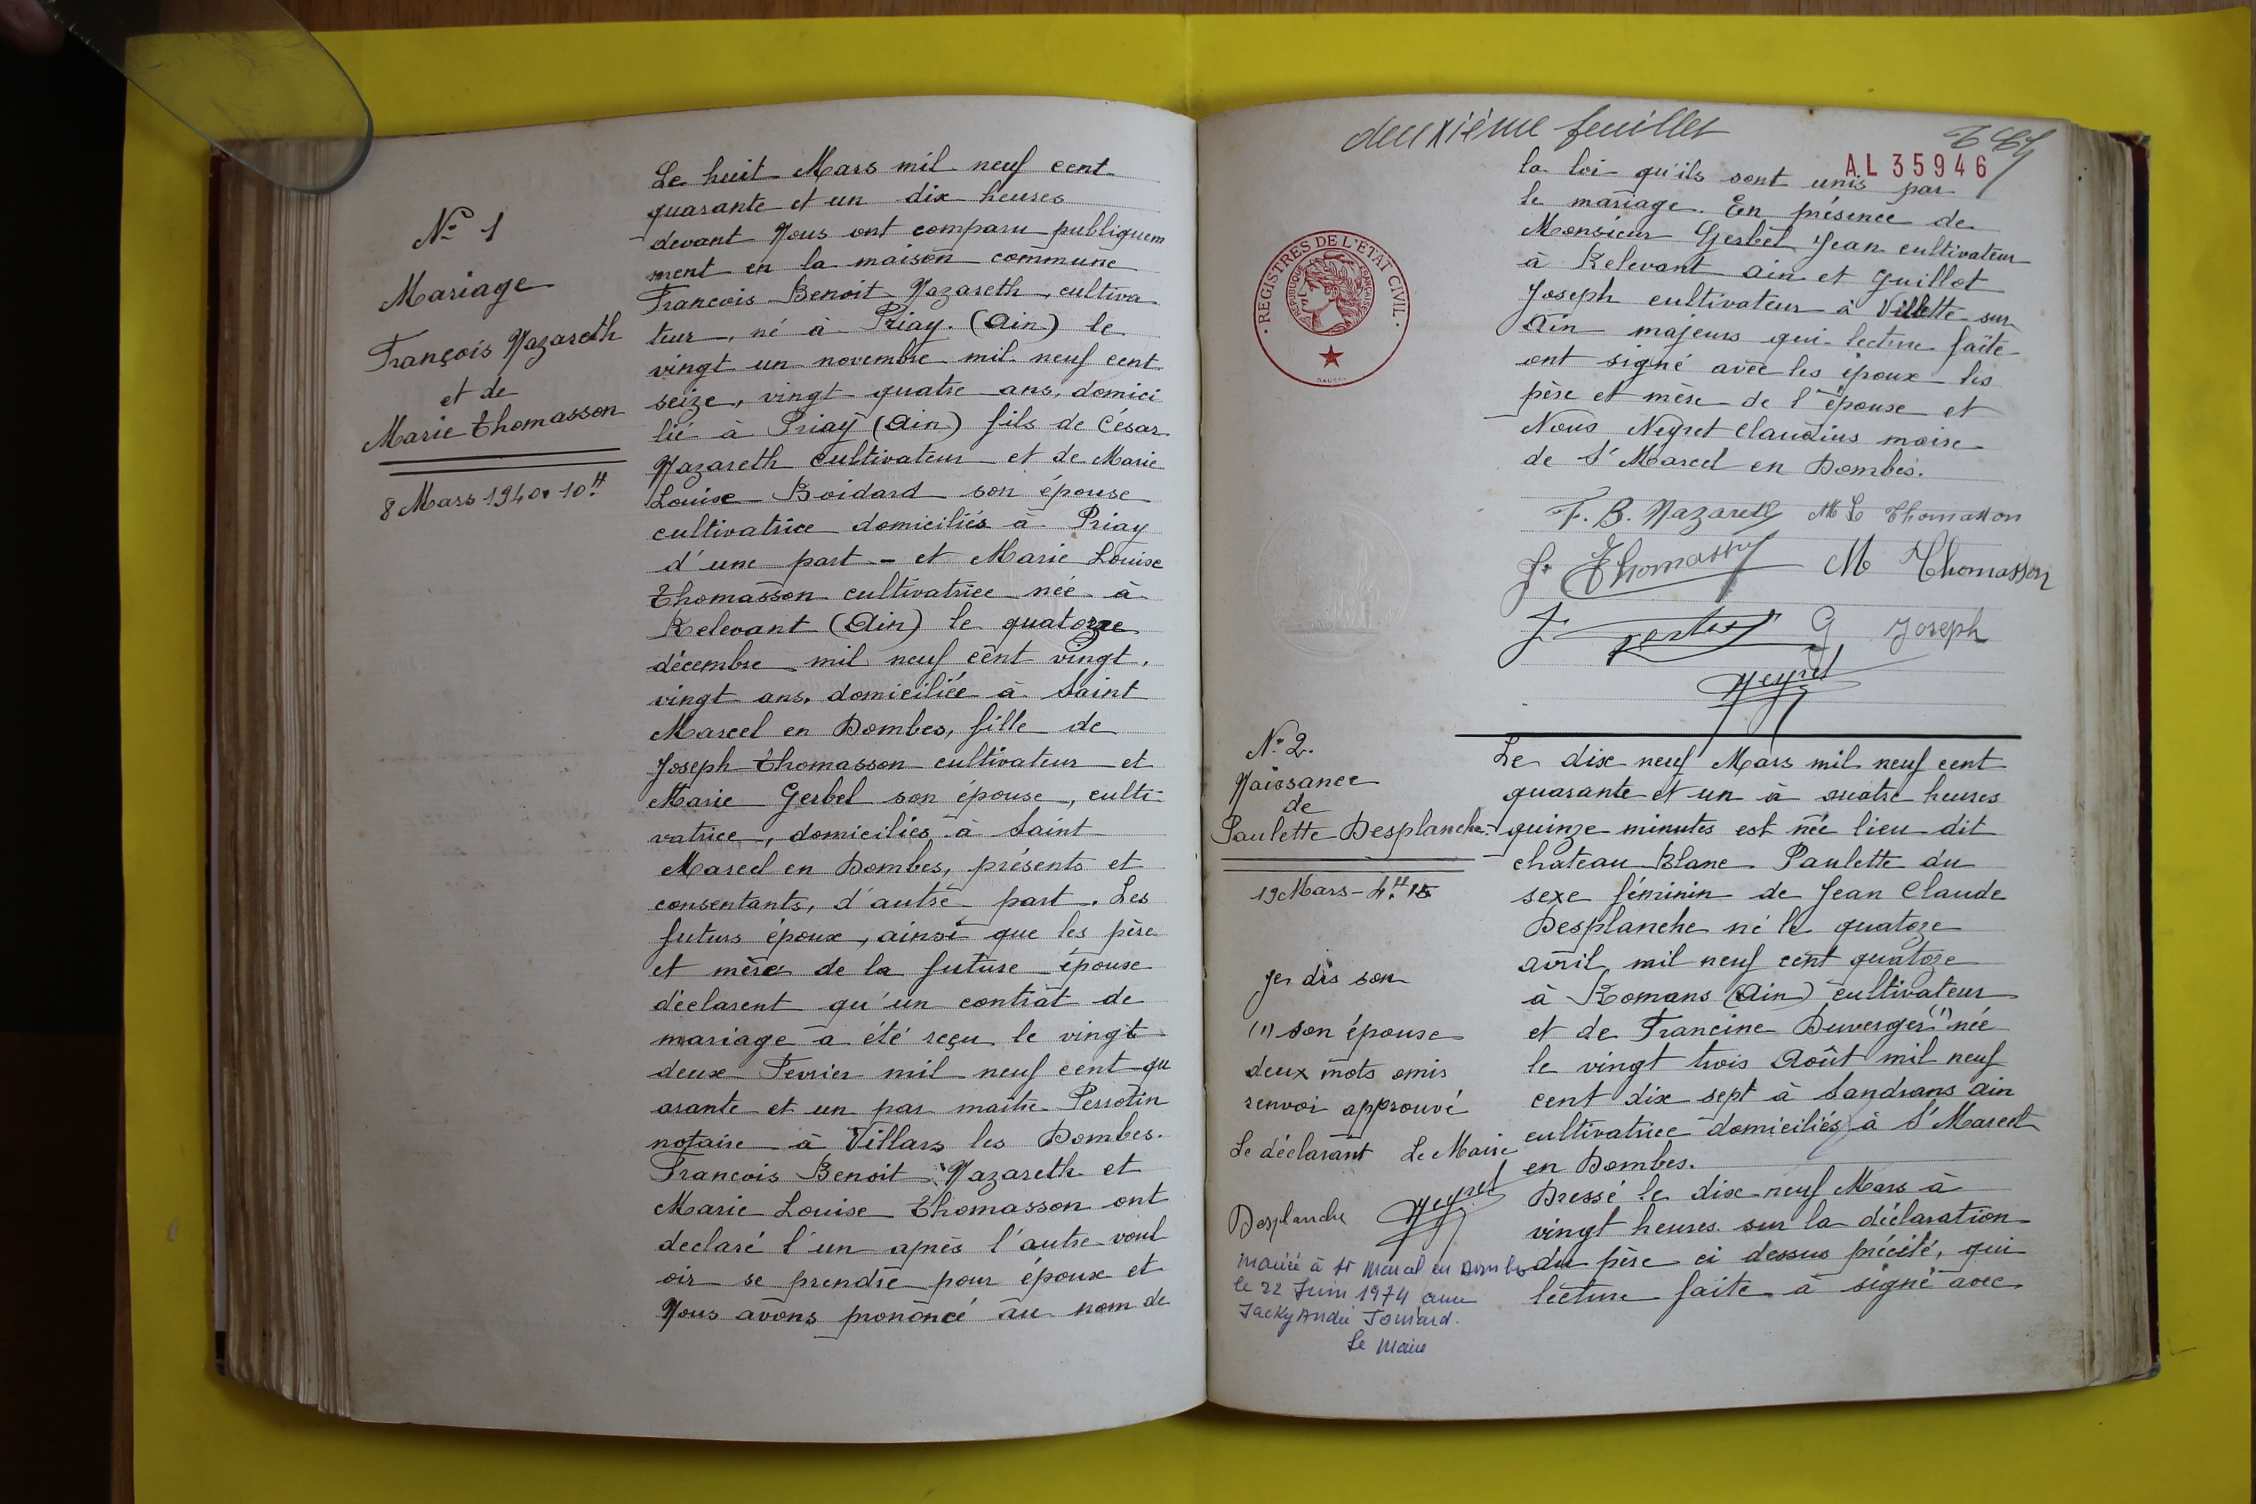 Nº 1
Mariage
François Nazareth
et de
Marie Thomasson
8 Mars 1940. 10H
Le huit Mars mil neuf cent
quarante et un dix heures
devant Nous ont comparu publiquem
ment en la maison commune
Francois Benoit Nazareth, cultiva
teur, né à Priay. (Ain) le
vingt un novembre mil neuf cent
seize, vingt quatre ans, domici
lié à Priay (Ain) fils de César
Nazareth cultivateur et de Marie
Louise Boidard son épouse
cultivatrice domiciliés à Priay
d'une part - et Marie Louise
Thomasson cultivatrice née à
Relevant (Ain) le quatorze
décembre mil neuf cent vingt,
vingt ans, domiciliée à Saint
Marcel en Dombes, fille de
Joseph Thomasson cultivateur et
Marie Gerbel son épouse, culti-
vatrice, domiciliés à Saint
Marcel en Dombes, présents et
consentants, d'autre part. Les
futurs époux, ainsi que les père
et mère de la future épouse
déclarent qu'un contrat de
mariage a été reçu le vingt
deux Fevrier mil neuf cent qu
arante et un par maitre Perrotin
notaire à Villars les Dombes.
Francois Benoit Nazareth et
Marie Louise Thomasson ont
declaré l'un après l'autre voul
oir se prendre pour époux et
Nous avons prononcé au nom de
deuxième feuillet
AL 35946
la loi qu'ils sont unis par
le mariage. En présence de
Monsieur Gerbel Jean cultivateur
à Relevant Ain et Guillot
Joseph cultivateur à Villette sur
Ain majeurs qui lecture faite
ont signé avec les époux les
père et mère de l'épouse et
Nous Neyret Claudius maire
de St Marcel en Dombes.
REGISTRES DE L'ÉTAT CIVIL
RÉPUBLIQUE FRANÇAISE
F. B. Nazareth M L Thomasson
J. Thomasson M Thomasson
J G Joseph
Neyret
N° 2.
Naissance
de
Paulette Desplanche
19 Mars - 4H. 15
Le dix neuf Mars mil neuf cent
quarante et un à quatre heures
quinze minutes est née lieu dit
chateau Blanc Paulette du
sexe féminin de Jean Claude
Desplanche né le quatoze
avril mil neuf cent quatoze
à Romans (Ain) cultivateur
et de Francine Duverger (1) née
le vingt trois Août mil neuf
cent dix sept à Sandrans Ain
cultivatrice domiciliés à St Marcel
en Dombes.
Dressé le dix neuf Mars à
vingt heures sur la déclaration
du père ci dessus précité, qui
lecture faite à signé avec
Je dis son
(1) son épouse
deux mots omis
renvoi approuvé
Le déclarant Le Maire
Desplanche Neyret
Mariée à St Marcel en Dombes
le 22 Juin 1974 avec
Jacky André
Le Maire